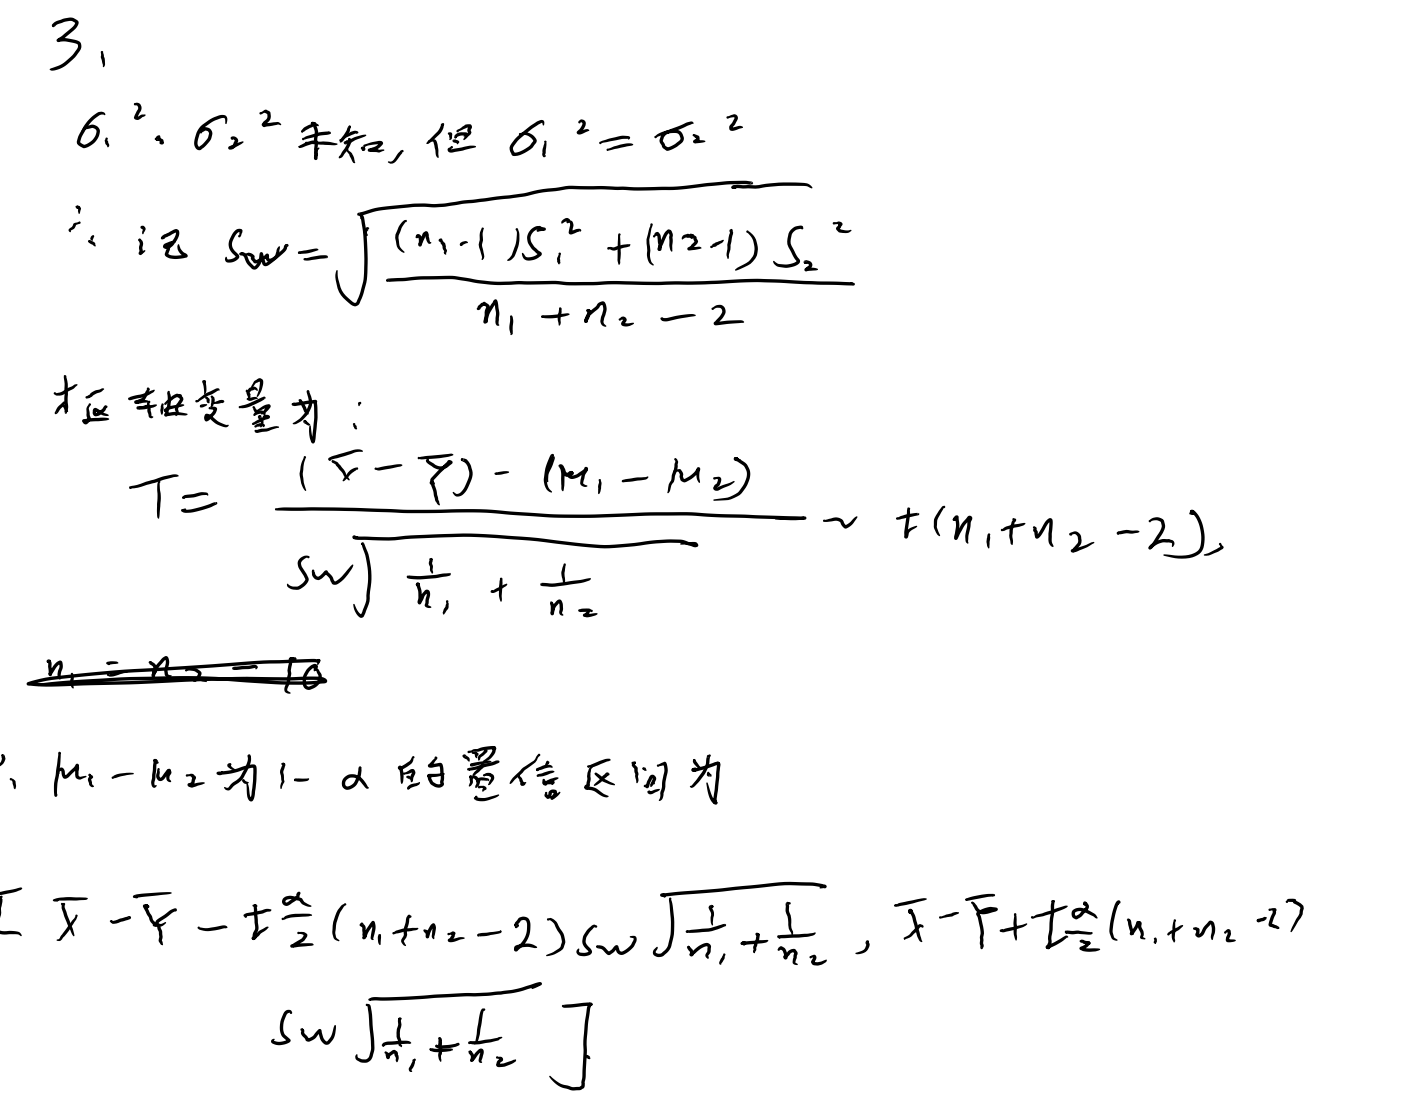 3.
σ₁²、σ₂² 未知, 但 σ₁² = σ₂²
∴ 记 Sw = √((n₁-1)S₁² + (n2-1)S₂² / n₁ + n₂ - 2)
枢轴变量为:
T = ((X̄ - Ȳ) - (μ₁ - μ₂)) / (Sw√(1/n₁ + 1/n₂)) ~ t(n₁+n₂-2),
n₁ = n₂ = 10
∴ μ₁ - μ₂ 为 1-α 的置信区间为
[X̄ - Ȳ - t α/2 (n₁+n₂-2) Sw √(1/n₁ + 1/n₂), X̄ - Ȳ + t α/2 (n₁+n₂-2)
Sw √(1/n₁ + 1/n₂)]